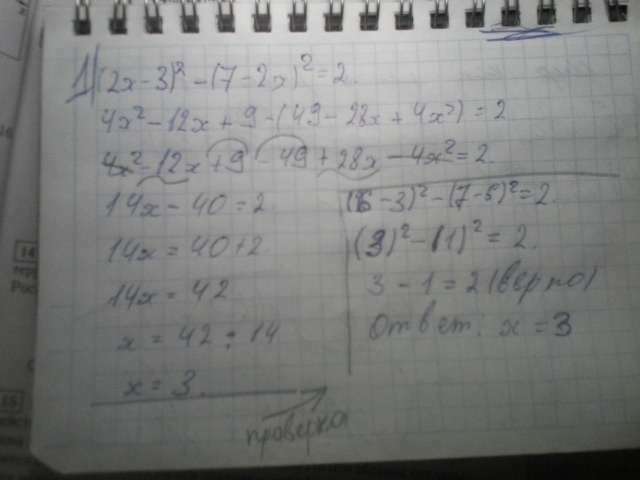 1) (2x-3)² - (7-2x)² = 2.
4x² - 12x + 9 - (49 - 28x + 4x²) = 2
4x² - 12x + 9 - 49 + 28x - 4x² = 2.
14x - 40 = 2
14x = 40 + 2
14x = 42
x = 42 : 14
x = 3.
проверка
(6-3)² - (7-6)² = 2.
(3)² - (1)² = 2.
3 - 1 = 2 (верно)
Ответ: x = 3
14
тер
Рос
15